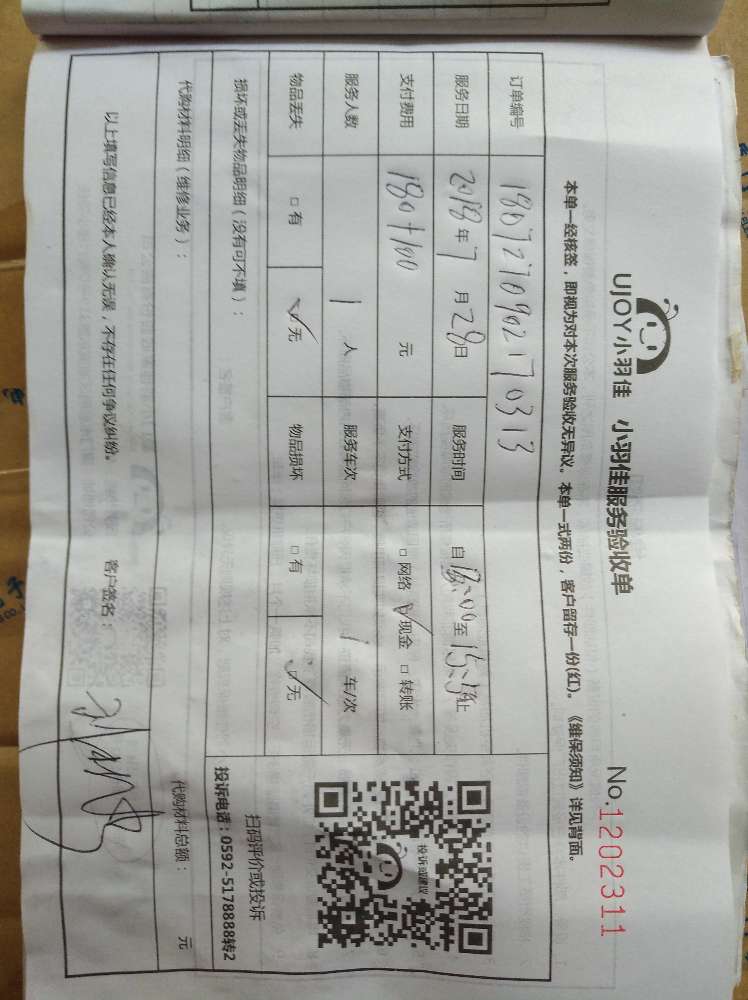 UJOY小羽佳 小羽佳服务验收单 No.1202311
本单一经核签，即视为对本次服务验收无异议。本单一式两份，客户留存一份(红)。《维保须知》详见背面。
订单编号 1807270902170313
服务日期 2018年7月28日 服务时间 自 至 止
支付费用 180+100 元 支付方式 □网络 ☑现金 □转账
服务人数 1人 服务车次 1车/次
物品丢失 □有 ☑无 物品损坏 □有 ☑无
投诉或建议
扫码评价或投诉
投诉电话：0592-5178888转2
损坏或丢失物品明细（没有可不填）：
代购材料明细（维修业务）： 代购材料总额： 元
以上填写信息已经本人确认无误，不存在任何争议纠纷。 客户签名：